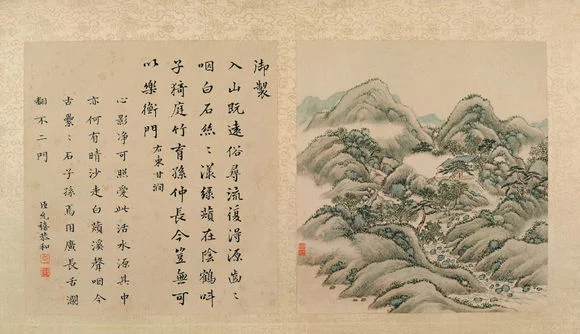 御製
入山既遠俗尋流復得源齒〻
咽白石絲〻漾綠薠在陰鶴呌
子猗庭竹育孫仲長今豈無可
以樂衡門 右東甘澗
心影净可照愛此活水源其中
亦何有晴沙走白薠溪聲咽今
古纍〻石子孫焉用廣長舌瀾
翻不二門 臣允禧恭和